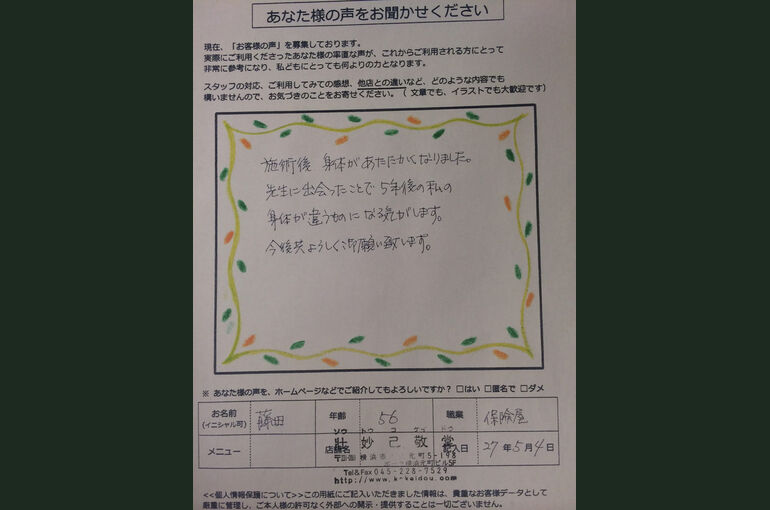 あなた様の声をお聞かせください
現在、「お客様の声」を募集しております。
実際にご利用くださったあなた様の率直な声が、これからご利用される方にとって
非常に参考になり、私どもにとっても何よりの力となります。
スタッフの対応、ご利用してみての感想、他店との違いなど、どのような内容でも
構いませんので、お気づきのことをお寄せください。（文章でも、イラストでも大歓迎です）
施術後 身体があたたかくなりました。
先生に出会ったことで 5年後の私の
身体が違うものになる気がします。
今後共よろしく御願い致します。
※ あなた様の声を、ホームページなどでご紹介してもよろしいですか？ □はい □匿名で □ダメ
お名前 (イニシャル可) 藤田 年齢 56 職業 保険屋
メニュー 店舗名 壮妙己敬堂 記入日 27年5月4日
横浜市 元町5-198
横浜元町ビル5F
Tel&Fax 045-228-7529
http://www.k-keidou.com
<<個人情報保護について>>この用紙にご記入いただきました情報は、貴重なお客様データとして
厳重に管理し、ご本人様の許可なく外部への開示・提供することは一切ございません。